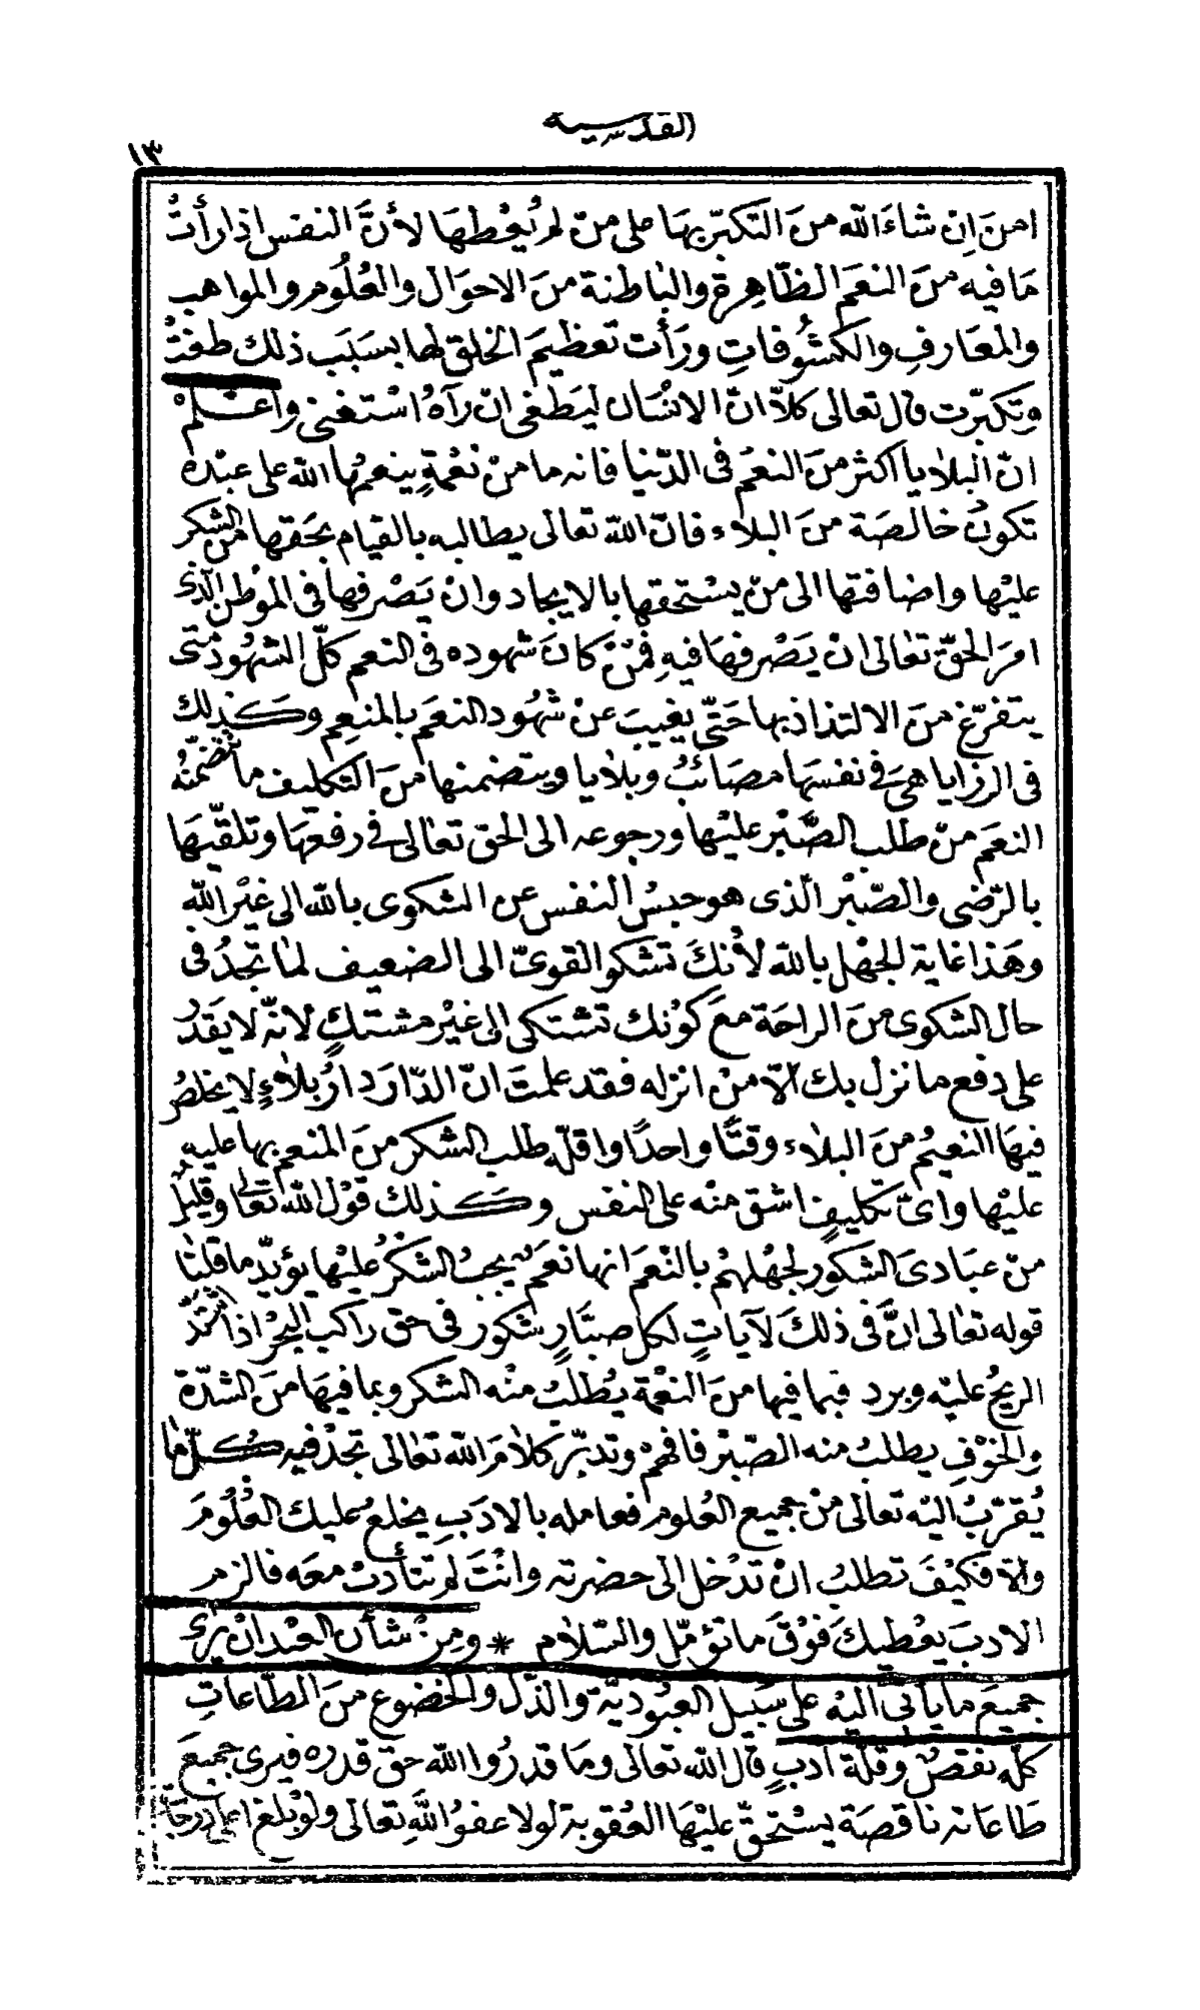 القدسية
١٣
امن ان شاء الله من التكبّر بها على من لم يُعْطها لأنّ النفس اذا رأتْ
ما فيه من النعم الظّاهِرة والباطنة من الاحوال والعُلُوم والمواهب
والمعارفِ والكشُوفاتِ ورَأت تعظيم الخلق لها بسَبَب ذلك طغتْ
وتكبّرت قال تعالى كلاّ انّ الانسان ليَطغى ان رآهُ اسْتغنى واعْلمْ
انّ البلايا اكثر من النعم فى الدّنيا فانه ما منْ نعْمةٍ ينعمُها الله على عبْده
تكونُ خالصَة من البلاء فانّ الله تعالى يطالبه بالقيام بحَقها من الشكر
عليْها واضافتها الى منْ يسْتحقها بالايجاد وانْ يَصْرفها فى الموْطن الّذى
امرَ الحقّ تعالى انْ يَصْرفهَا فيهِ فمنْ كانَ شهوده فى النعم كلّ الشهُود متى
يتفرّغ من الالتذاذ بها حَتّى يغيبَ عنْ شهُود النعَم بالمنعِم وكذلك
فى الرزايا هىَ فى نفسهَا مصَائبُ وبلايا ويتضمنها منَ التكليف ما تتضمّنهُ
النعَم منْ طلب الصَّبْر عليْها ورجوعه الى الحق تعالى فى رفعهَا وتلقّيهَا
بالرّضى والصّبْر الّذى هو حبسُ النفس عن الشكوى بالله الى غيْر الله
وهَذا غاية الجهْل بالله لأنكَ تشكو القوىّ الى الضعيف لما تجدُ فى
حال الشكوى منَ الراحَة معَ كوْنك تشتكى الى غيْر مشتكٍ لانّه لا يقدُ
على دفع ما نزل بك الاّ منْ انزله فقد علمتَ انّ الدّارَ دارُ بلاءٍ لا يخلصُ
فيهَا النعيُم منَ البلاء وقتًا واحدًا واقلّه طلب الشكر منَ المنعم بها عليه
عليْها واىّ تكليفٍ اشق منْه على النفس وكذلك قوْل الله تعالى وقليلٌ
منْ عبَادىَ الشكور لجهْلهمْ بالنّعَم انها نعَم يجبُ الشكرُ عليْها يؤيّد ما قلنا
قوله تعالى انَّ فى ذلكَ لآياتٍ لكل صبَّارٍ شكور فى حق راكب البحْر اذا اشتدّ
الريحُ عليْه وبرد فبما فيها منَ النعْمة يُطلبُ منْه الشكر وبما فيهَا منَ الشدّة
والخوْفِ يطلبُ منه الصّبْر فافهمْ وتدبّرْ كلامَ الله تعالى تجدْ فيه كلّ ما
يُقرّبُ اليْه تعالى منْ جميع العُلوم فعامله بالادَبِ يخلعُ عليك العُلُومَ
والاّ فكيْفَ تطلبُ انْ تدْخل الى حضرته وانتَ لم تتأدبْ معَه فالزم
الادبَ يعْطيكَ فوْقَ ما تؤمّل والسّلام * ومِنْ شأن العبْد انْ يرى
جميعَ ما يأتى اليْه على سَبيل العبُوديّة والذّل والخضوع منَ الطّاعاتِ
كلّه نقصٌ وقلّة ادبٍ قال الله تعالى ومَا قدرُوا الله حقّ قدره فيرى جميعَ
طَاعَاته ناقصَة يسْتحقّ عليْهَا العُقوبة لولا عفوُ اللهِ تعالى ولوْ بلغ اعلى درجات